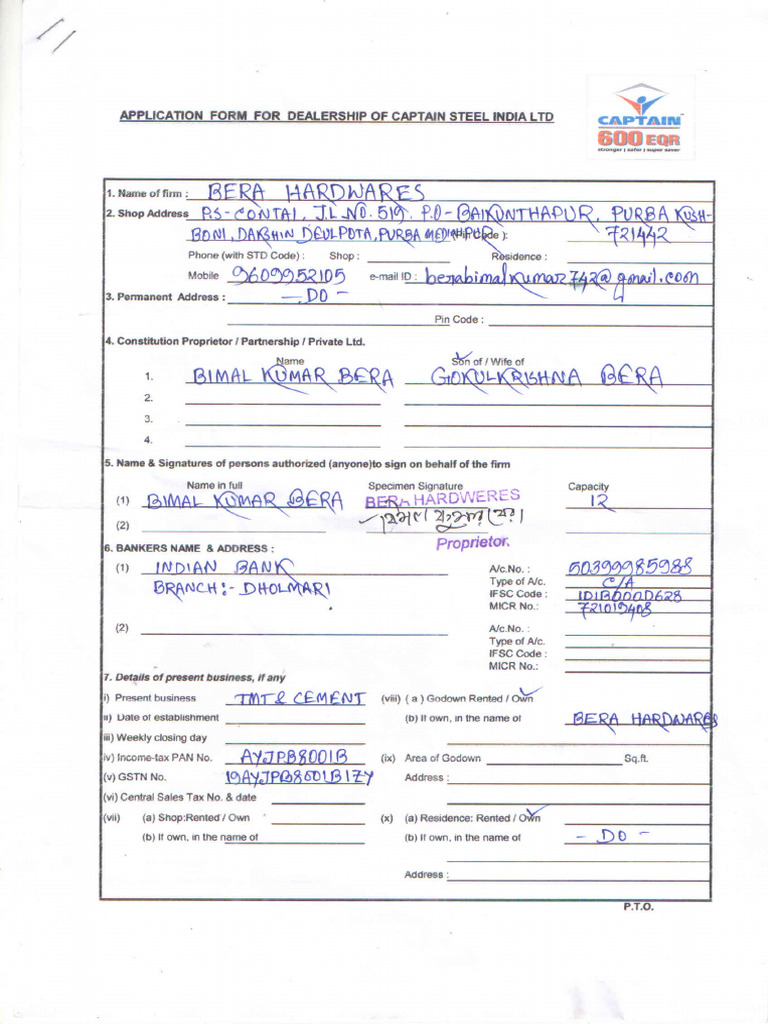 APPLICATION FORM FOR DEALERSHIP OF CAPTAIN STEEL INDIA LTD
CAPTAIN
600 EQR
stronger | safer | super saver
1. Name of firm : BERA HARDWARES
2. Shop Address P.S-CONTAI, J.L NO. 519. P.O- BAIKUNTHAPUR, PURBA KUSH-
BONI, DAKSHIN DEULPOTA, PURBA MEDINIPUR (Pin Code ): 721442
Phone (with STD Code) : Shop : Residence :
Mobile 9609952105 e-mail ID : berabimalkumar742@gmail.com
3. Permanent Address : - DO -
Pin Code :
4. Constitution Proprietor / Partnership / Private Ltd.
Name Son of / Wife of
1. BIMAL KUMAR BERA GOKULKRISHNA BERA
2.
3.
4.
5. Name & Signatures of persons authorized (anyone)to sign on behalf of the firm
Name in full Specimen Signature Capacity
(1) BIMAL KUMAR BERA BERA HARDWERES 12
(2)
Proprietor.
6. BANKERS NAME & ADDRESS :
(1) INDIAN BANK A/c.No. : 50399985988
BRANCH:- DHOLMARI Type of A/c. C/A
IFSC Code : IDIB000D628
MICR No.: 721019408
(2) A/c.No. :
Type of A/c.
IFSC Code :
MICR No.:
7. Details of present business, if any
i) Present business TMT & CEMENT (viii) ( a ) Godown Rented / Own
ii) Date of establishment (b) If own, in the name of BERA HARDWARES
iii) Weekly closing day
iv) Income-tax PAN No. AYJPB8001B (ix) Area of Godown Sq.ft.
(v) GSTN No. 19AYJPB8001B1ZY Address :
(vi) Central Sales Tax No. & date
(vii) (a) Shop:Rented / Own (x) (a) Residence: Rented / Own
(b) If own, in the name of (b) If own, in the name of - DO -
Address :
P.T.O.